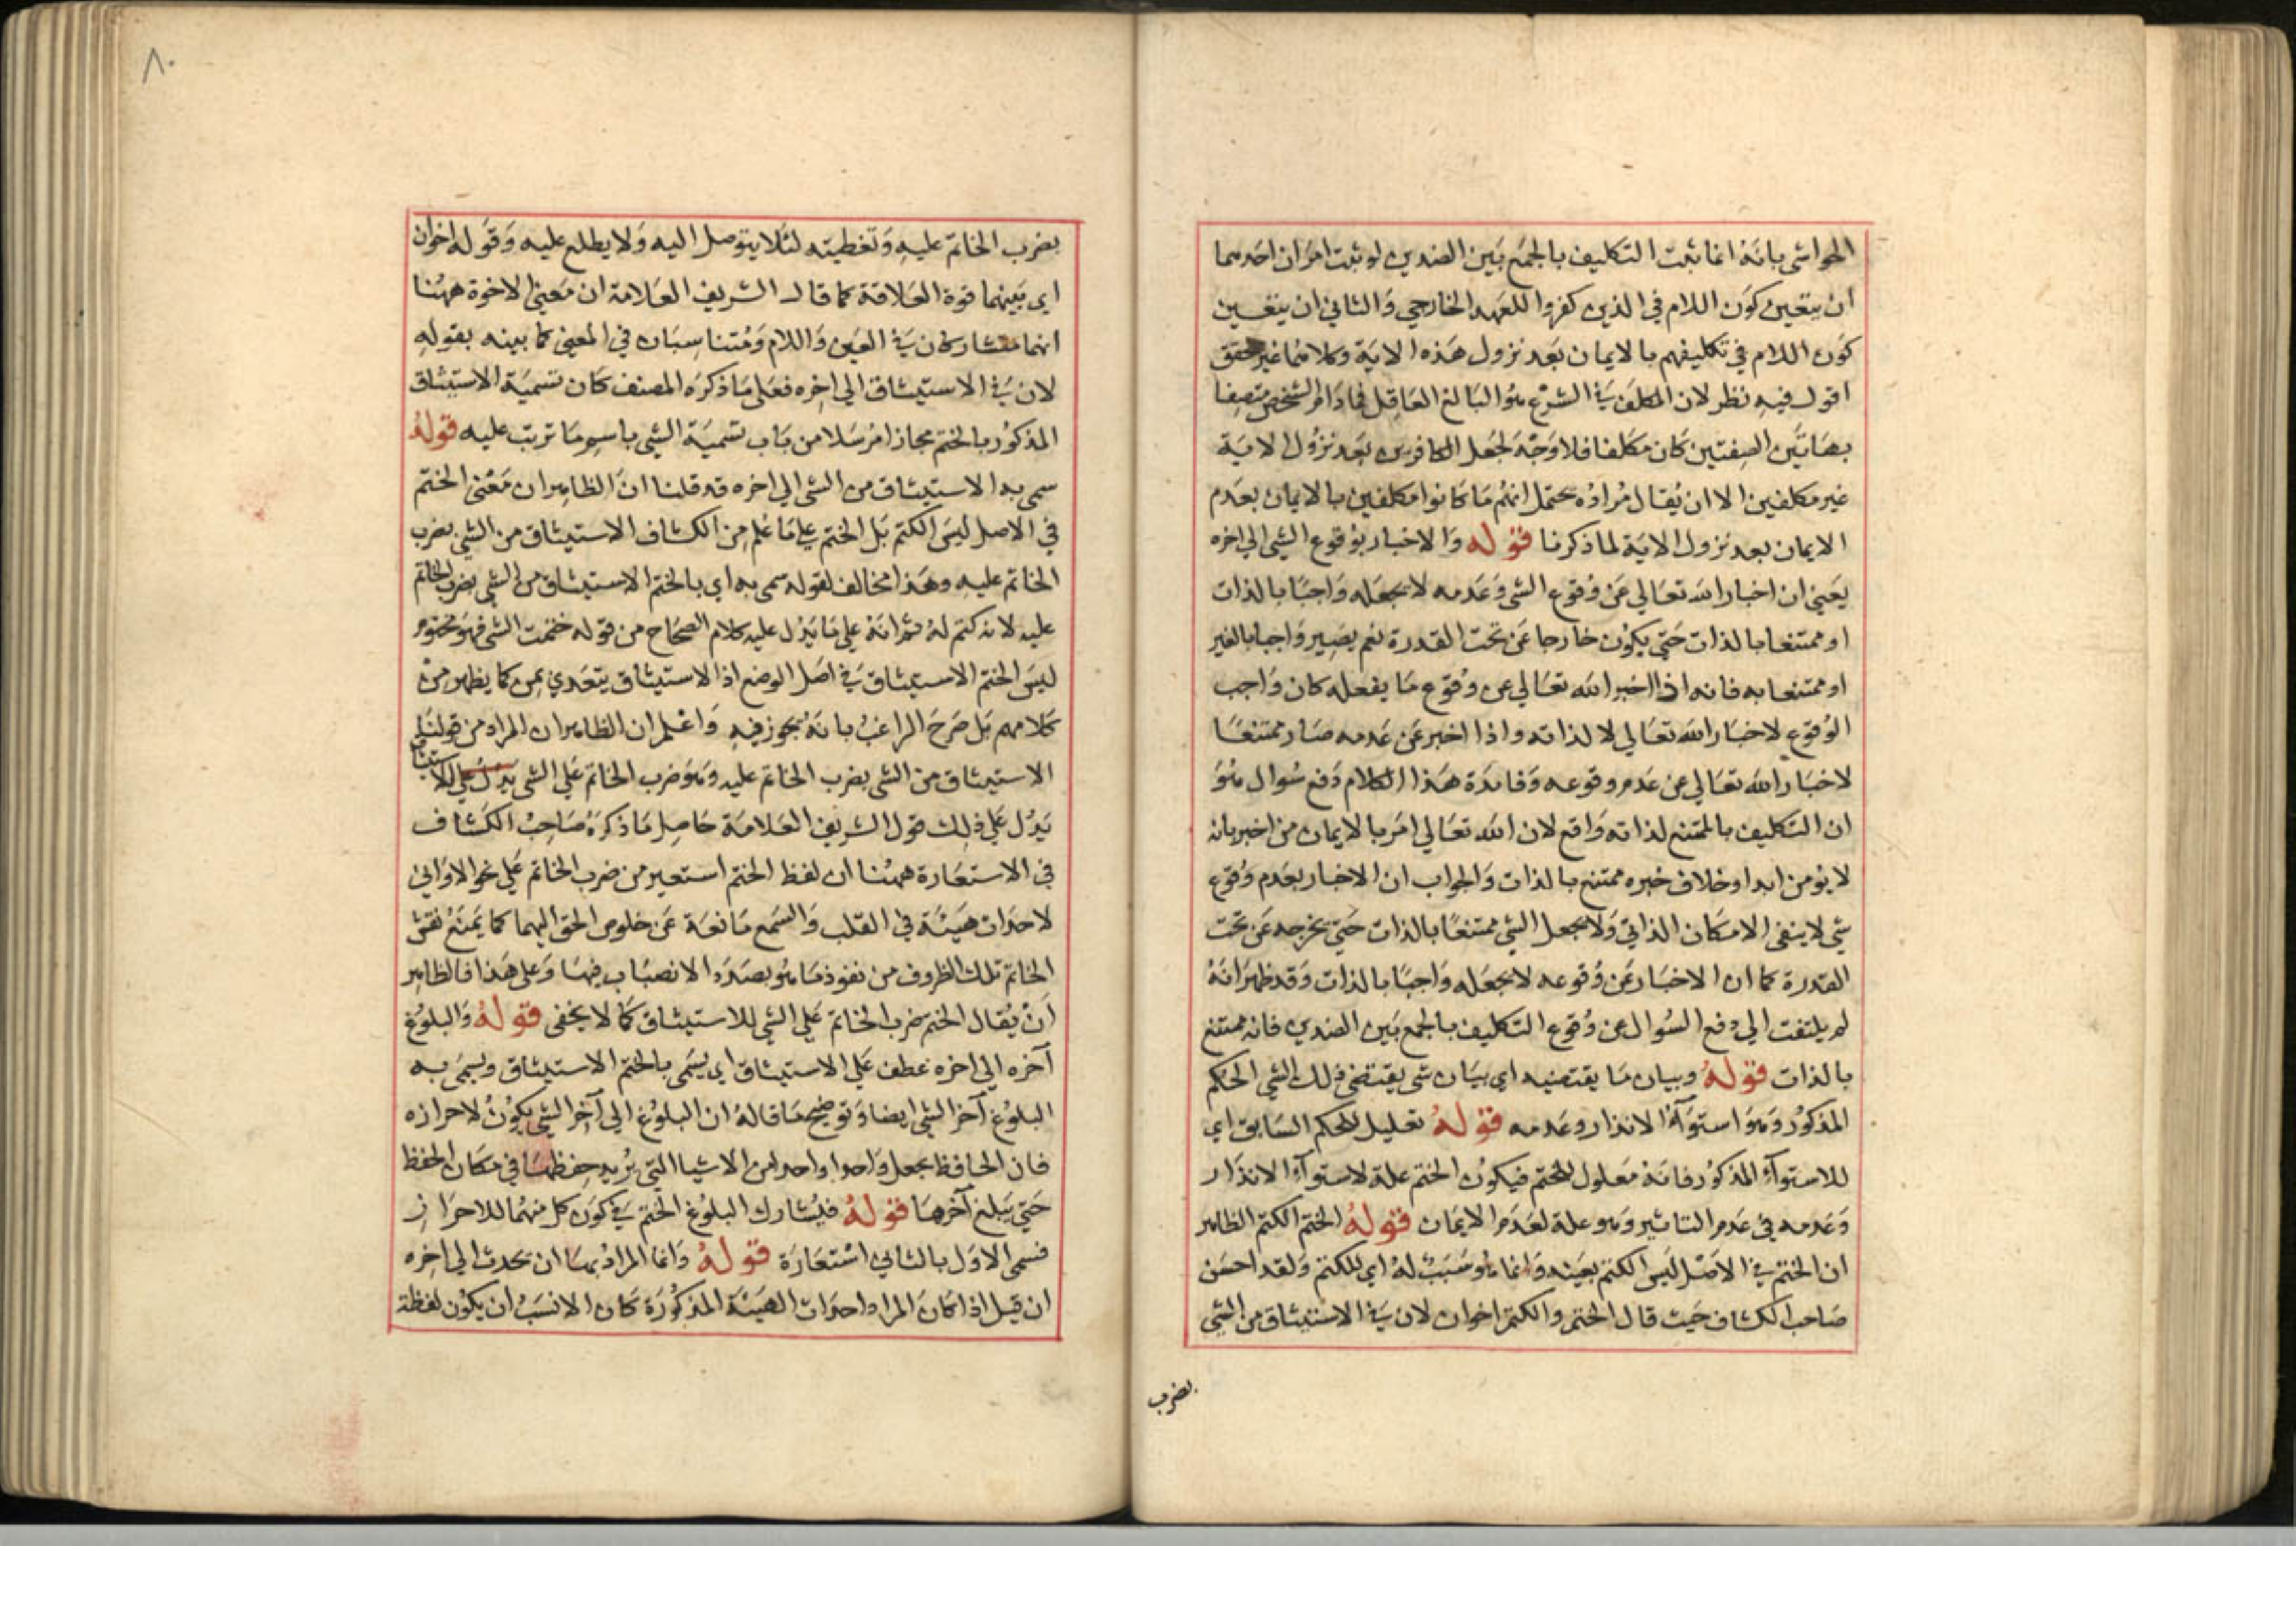 الحواشي بانه انما ثبت التكليف بالجمع بين الضدين لو ثبت امران احدهما
ان يتعين كون اللام في الذين كفروا للعهد الخارجي والثاني ان يتعين
كون اللام في تكليفهم بالايمان بعد نزول هذه الاية وكلاهما غير محقق
اقول فيه نظر لان المكلف في الشرع هو البالغ العاقل فما دام الشخص متصفا
بهاتين الصفتين كان مكلفا فلا وجه لجعل الكافرين بعد نزول الاية
غير مكلفين الا ان يقال مراده يحتمل انهم ما كانوا مكلفين بالايمان بعدم
الايمان بعد نزول الاية لما ذكرنا قوله والاخبار بوقوع الشي الي اخره
يعني ان اخبار الله تعالي عن وقوع الشي وعدمه لا يجعله واجبا بالذات
او ممتنعا بالذات حتي يكون خارجا عن تحت القدرة نعم يصير واجبا بالغير
او ممتنعا به فانه اذا اخبر الله تعالي عن وقوع ما يفعله كان واجب
الوقوع لاخبار الله تعالي لا لذاته واذا اخبر عن عدمه صار ممتنعا
لاخبار الله تعالي عن عدم وقوعه وفائدة هذا الكلام دفع سوال هو
ان التكليف بالممتنع لذاته واقع لان الله تعالي امر بالايمان من اخبر بانه
لا يومن ابدا وخلاف خبره ممتنع بالذات والجواب ان الاخبار بعدم وقوع
شي لا ينفي الامكان الذاتي ولا يجعل الشي ممتنعا بالذات حتي يخرجه عن تحت
القدرة كما ان الاخبار عن وقوعه لا يجعله واجبا بالذات وقد ظهر انه
لم يلتفت الي دفع السوال عن وقوع التكليف بالجمع بين الضدين فانه ممتنع
بالذات قوله وبيان ما يقتضيه اي بيان شي يقتضي ذلك الشي الحكم
المذكور وهو استوآء الانذار وعدمه قوله تعليل للحكم السابق اي
للاستوآء المذكور فانه معلول للختم فيكون الختم علة لاستوآء الانذار
وعدمه في عدم التاثير وهو علة لعدم الايمان قوله الختم الكتم الظاهر
ان الختم في الاصل ليس الكتم بعينه وانما هو سبب له اي للكتم ولقد احسن
صاحب الكشاف حيث قال الختم والكتم اخوان لان في الاستيثاق من الشي
بضرب
٨٠
بضرب الخاتم عليه وتغطيته لئلا يتوصل اليه ولا يطلع عليه وقوله اخوان
اي بينهما قوة العلاقة كما قال الشريف العلامة ان معني الاخوة ههنا
انهما متشاركان في العين واللام ومتناسبان في المعني كما بينه بقوله
لان في الاستيثاق الي اخره فعلي ما ذكره المصنف كان تسمية الاستيثاق
المذكور بالختم مجازا مرسلا من باب تسمية الشي باسم ما ترتب عليه قوله
سمي به الاستيثاق من الشي الي اخره قد قلنا ان الظاهر ان معني الختم
في الاصل ليس الكتم بل الختم علي ما علم من الكشاف الاستيثاق من الشي بضرب
الخاتم عليه وهذا مخالف لقوله سمي به اي بالختم الاستيثاق من الشي بضرب الخاتم
عليه لانه كتم له ثم انه علي ما يدل عليه كلام الصحاح من قوله ختمت الشي فهو مختوم
ليس الختم الاستيثاق في اصل الوضع اذ الاستيثاق يتعدي بمن كما يظهر من
كلامهم بل صرح الراغب بانه يجوز فيه واعلم ان الظاهر ان المراد من قولنا
الاستيثاق من الشي بضرب الخاتم عليه وهو ضرب الخاتم علي الشي للاستيثاق
يدل علي ذلك قول الشريف العلامة حاصل ما ذكره صاحب الكشاف
في الاستعارة ههنا ان لفظ الختم استعير من ضرب الخاتم علي نحو الاواني
لاحداث هيئة في القلب والسمع مانعة عن خلوص الحق اليهما كما يمنع نقش
الخاتم تلك الظروف من نفوذ ما هو بصدد الانصباب فيها وعلي هذا فالظاهر
ان يقال الختم ضرب الخاتم علي الشي للاستيثاق كما لا يخفي قوله والبلوغ
آخره الي اخره عطف علي الاستيثاق اي يسمي بالختم الاستيثاق ويسمي به
البلوغ آخر الشي ايضا وتوضيح ما قاله ان البلوغ الي آخر الشي يكون لاحرازه
فان الحافظ يجعل واحدا واحدا من الاشيا التي يريد حفظها في مكان الحفظ
حتي يبلغ آخرها قوله فيشارك البلوغ الختم في كون كل منهما للاحراز
فسمي الاول بالثاني استعارة قوله وانما المراد بهما ان يحدث الي اخره
ان قيل اذا كان المراد احداث الهيئة المذكورة كان الانسب ان يكون لفظة